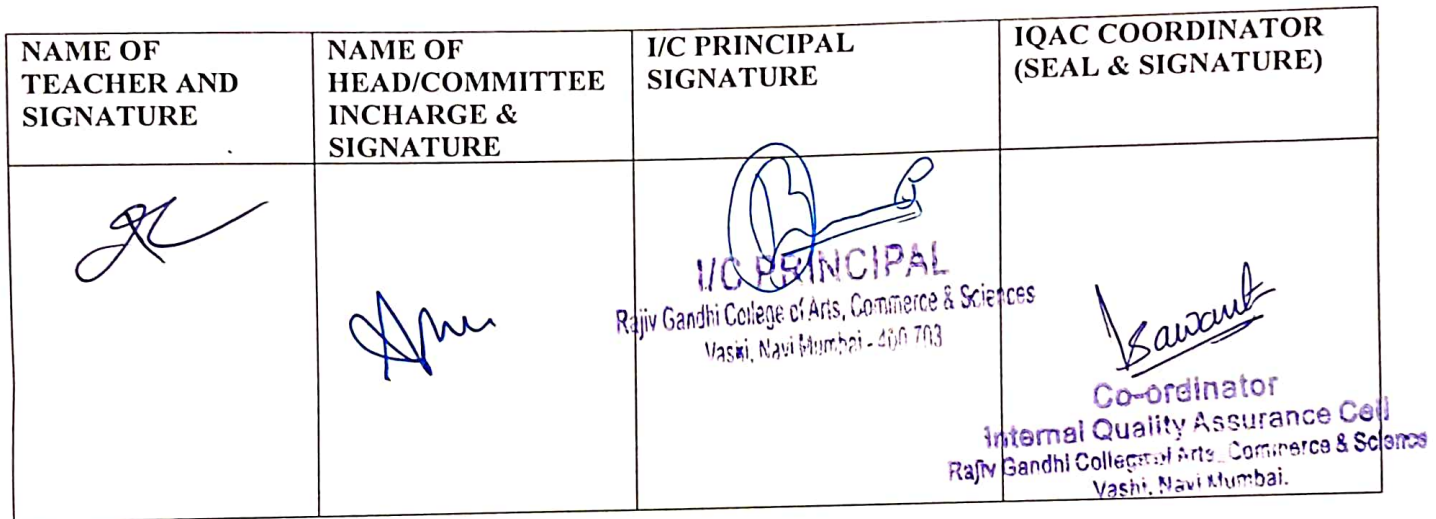 NAME OF
TEACHER AND
SIGNATURE
NAME OF
HEAD/COMMITTEE
INCHARGE &
SIGNATURE
I/C PRINCIPAL
SIGNATURE
IQAC COORDINATOR
(SEAL & SIGNATURE)
I/C PRINCIPAL
Rajiv Gandhi College of Arts, Commerce & Sciences
Vashi, Navi Mumbai - 400 703
Sawant
Co-ordinator
Internal Quality Assurance Cell
Rajiv Gandhi College of Arts, Commerce & Science
Vashi, Navi Mumbai.